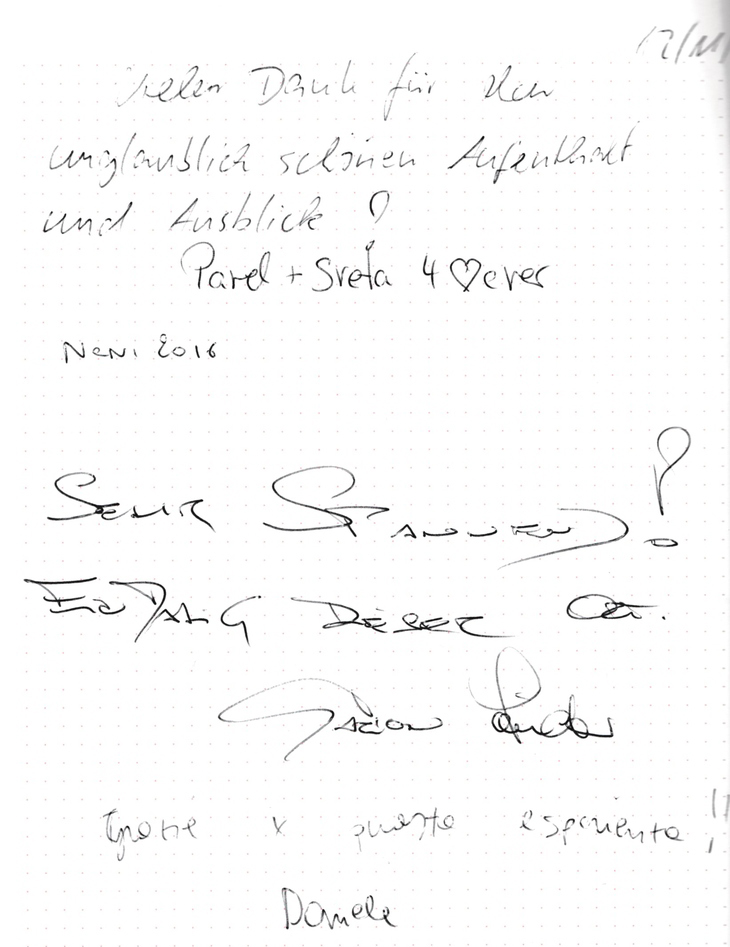 12/11/
Vielen Dank für den
unglaublich schönen Aufenthalt
und Ausblick !
Pavel + Sveta 4 ♡ ever
Neni 2016
SEHR SPANNEND !
DIESER ORT.
Grazie x questa esperienza !!
Daniele